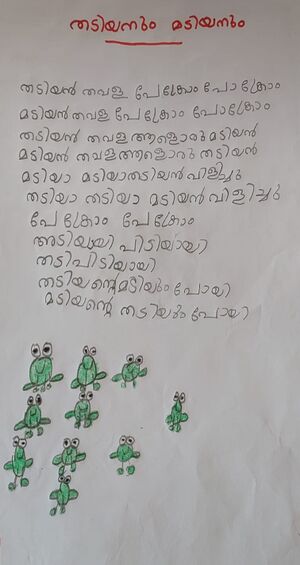 തടിയനും മടിയനും
തടിയൻ തവള പേക്രോം പോക്രോം
മടിയൻ തവള പേക്രോം പോക്രോം
തടിയൻ തവള ആളൊരു മടിയൻ
മടിയൻ തവള ആളൊരു തടിയൻ
മടിയാ മടിയാ തടിയൻ വിളിച്ചു
തടിയാ തടിയാ മടിയൻ വിളിച്ചു
പേക്രോം പേക്രോം
അടിയായി പിടിയായി
തടിപിടിയായി
തടിയന്റെ മടിയും പോയി
മടിയന്റെ തടിയും പോയി